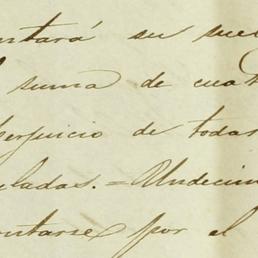 ntará su suel
suma de cuat
perjuicio de todas
ladas. = Undecim
ntarse por el